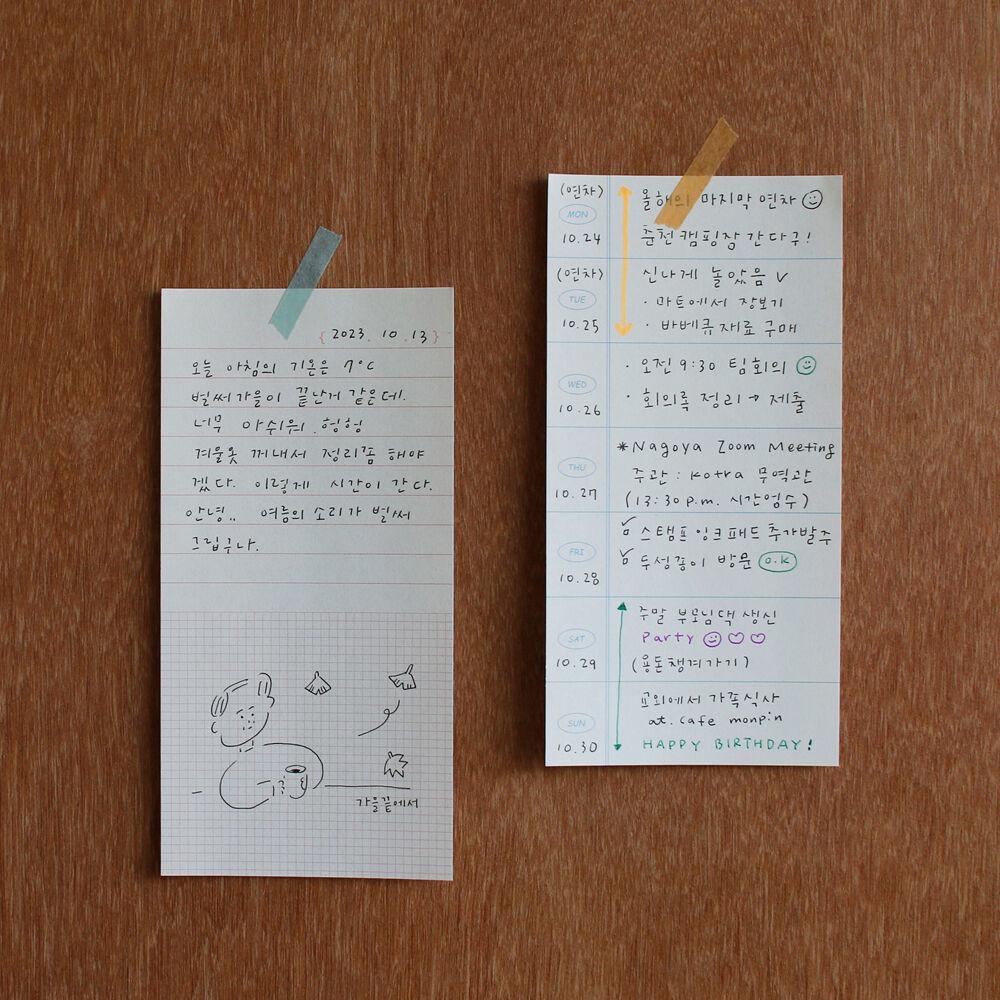 { 2023. 10. 13 }
오늘 아침의 기온은 7°C
벌써 가을이 끝난게 같은데.
너무 아쉬워. 헝헝
겨울옷 꺼내서 정리좀 해야
겠다. 이렇게 시간이 간다.
안녕.. 여름의 소리가 벌써
그립구나.
가을끝에서
(연차)
MON
10.24
올해의 마지막 연차
춘천캠핑장 간다구!
(연차)
TUE
10.25
신나게 놀았음 ✓
· 마트에서 장보기
· 바베큐재료 구매
WED
10.26
· 오전 9:30 팀회의
· 회의록 정리 → 제출
THU
10.27
*Nagoya Zoom Meeting
주관 : kotra 무역관
(13:30 p.m. 시간엄수)
FRI
10.28
✓ 스탬프 잉크패드 추가발주
✓ 두성종이 방문 o.k
SAT
10.29
주말 부모님댁 생신
Party ♡♡
(용돈챙겨가기)
SUN
10.30
교외에서 가족식사
at. cafe monpin
HAPPY BIRTHDAY!